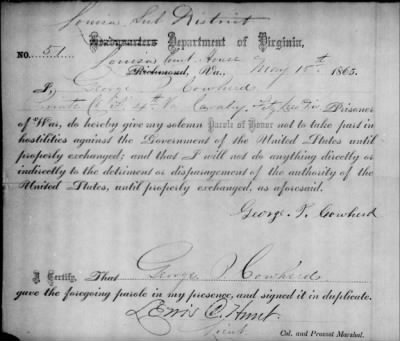 Louisa Sub District
Headquarters Department of Virginia,
NO. 51 Louisa Court House
Richmond, Va., May 18th 1865.
I, George Cowherd
Private Co. 4th Va Cavalry, Prisoner
of War, do hereby give my solemn Parole of Honor not to take part in
hostilities against the Government of the United States until
properly exchanged; and that I will not do anything directly or
indirectly to the detriment or disparagement of the authority of the
United States, until properly exchanged, as aforesaid.
George T. Cowherd
I Certify, That George Cowherd
gave the foregoing parole in my presence, and signed it in duplicate.
Lewis C. Hunt
Col. and Provost Marshal.